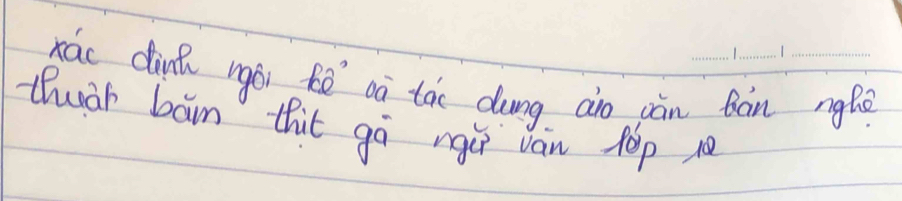 xác định ngôi kể và tác dụng của văn bản nghệ
thuật băm thịt gà ngữ văn lớp 12